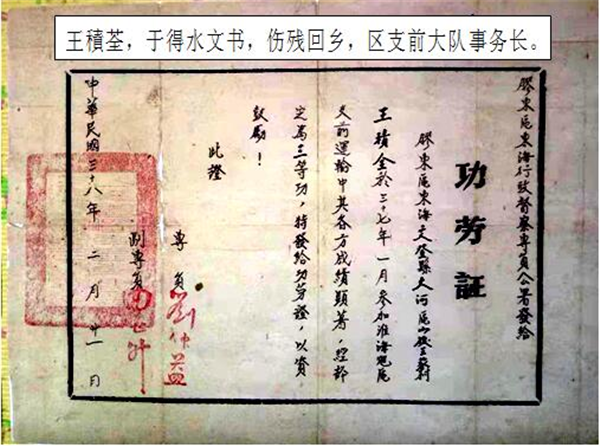 王積荃，于得水文书，伤残回乡，区支前大队事务长。
膠東區東海行政督察專員公署發給
功劳証
膠東區東海文登縣大河區山後王村
王積全於三十七年一月參加淮海區
支前運輸中其各方成績顯著，經評
定為三等功，特發給功劳證，以資
鼓励！
此證
專員 劉仲益
副專員
中華民國三十八年二月廿一日